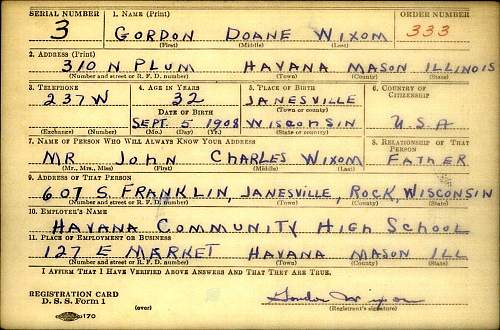 SERIAL NUMBER 1. NAME (Print) ORDER NUMBER
3 GORDON DOANE WIXOM 333
(First) (Middle) (Last)
2. ADDRESS (Print)
310 N PLUM HAVANA MASON ILLINOIS
(Number and street or R. F. D. number) (Town) (County) (State)
3. TELEPHONE 4. AGE IN YEARS 5. PLACE OF BIRTH 6. COUNTRY OF CITIZENSHIP
237W 32 JANESVILLE
DATE OF BIRTH (Town or county)
SEPT. 5 1908 WISCONSIN U.S.A
(Exchange) (Number) (Mo.) (Day) (Yr.) (State or country)
7. NAME OF PERSON WHO WILL ALWAYS KNOW YOUR ADDRESS 8. RELATIONSHIP OF THAT PERSON
MR JOHN CHARLES WIXOM FATHER
(Mr., Mrs., Miss) (First) (Middle) (Last)
9. ADDRESS OF THAT PERSON
607 S. FRANKLIN, JANESVILLE, ROCK, WISCONSIN
(Number and street or R. F. D. number) (Town) (County) (State)
10. EMPLOYER'S NAME
HAVANA COMMUNITY HIGH SCHOOL
11. PLACE OF EMPLOYMENT OR BUSINESS
127 E MARKET HAVANA MASON ILL
(Number and street or R. F. D. number) (Town) (County) (State)
I AFFIRM THAT I HAVE VERIFIED ABOVE ANSWERS AND THAT THEY ARE TRUE.
REGISTRATION CARD
D. S. S. Form 1 (over) Gordon Wixom
170 (Registrant's signature)